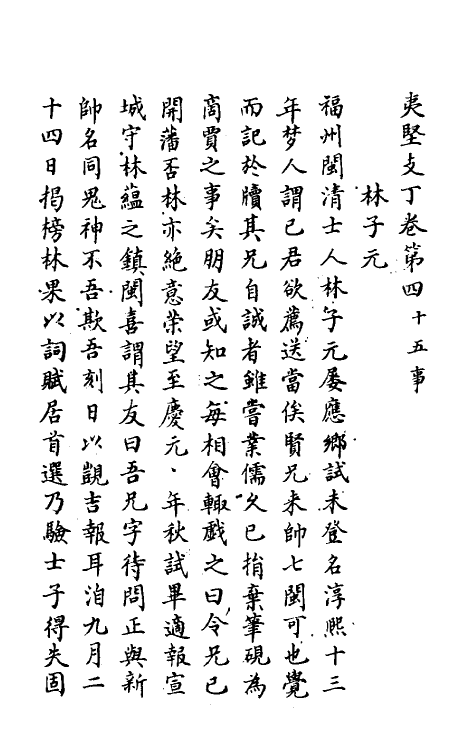 夷堅支丁卷第四十五事
林子元
福州閩清士人林子元屡應鄉試未登名淳熙十三
年梦人謂已君欲薦送當俟賢兄来帥七閩可也覺
而記於牘其兄自誠者雖嘗業儒久已捐棄筆硯為
商賈之事矣朋友或知之每相會輙戲之曰令兄已
開藩否林亦絶意荣望至慶元、年秋試畢適報宣
城守林蘊之鎮閩喜謂其友曰吾兄字待問正與新
帥名同鬼神不吾欺吾刻日以覬吉報耳洎九月二
十四日揭榜林果以詞賦居首選乃驗士子得失固